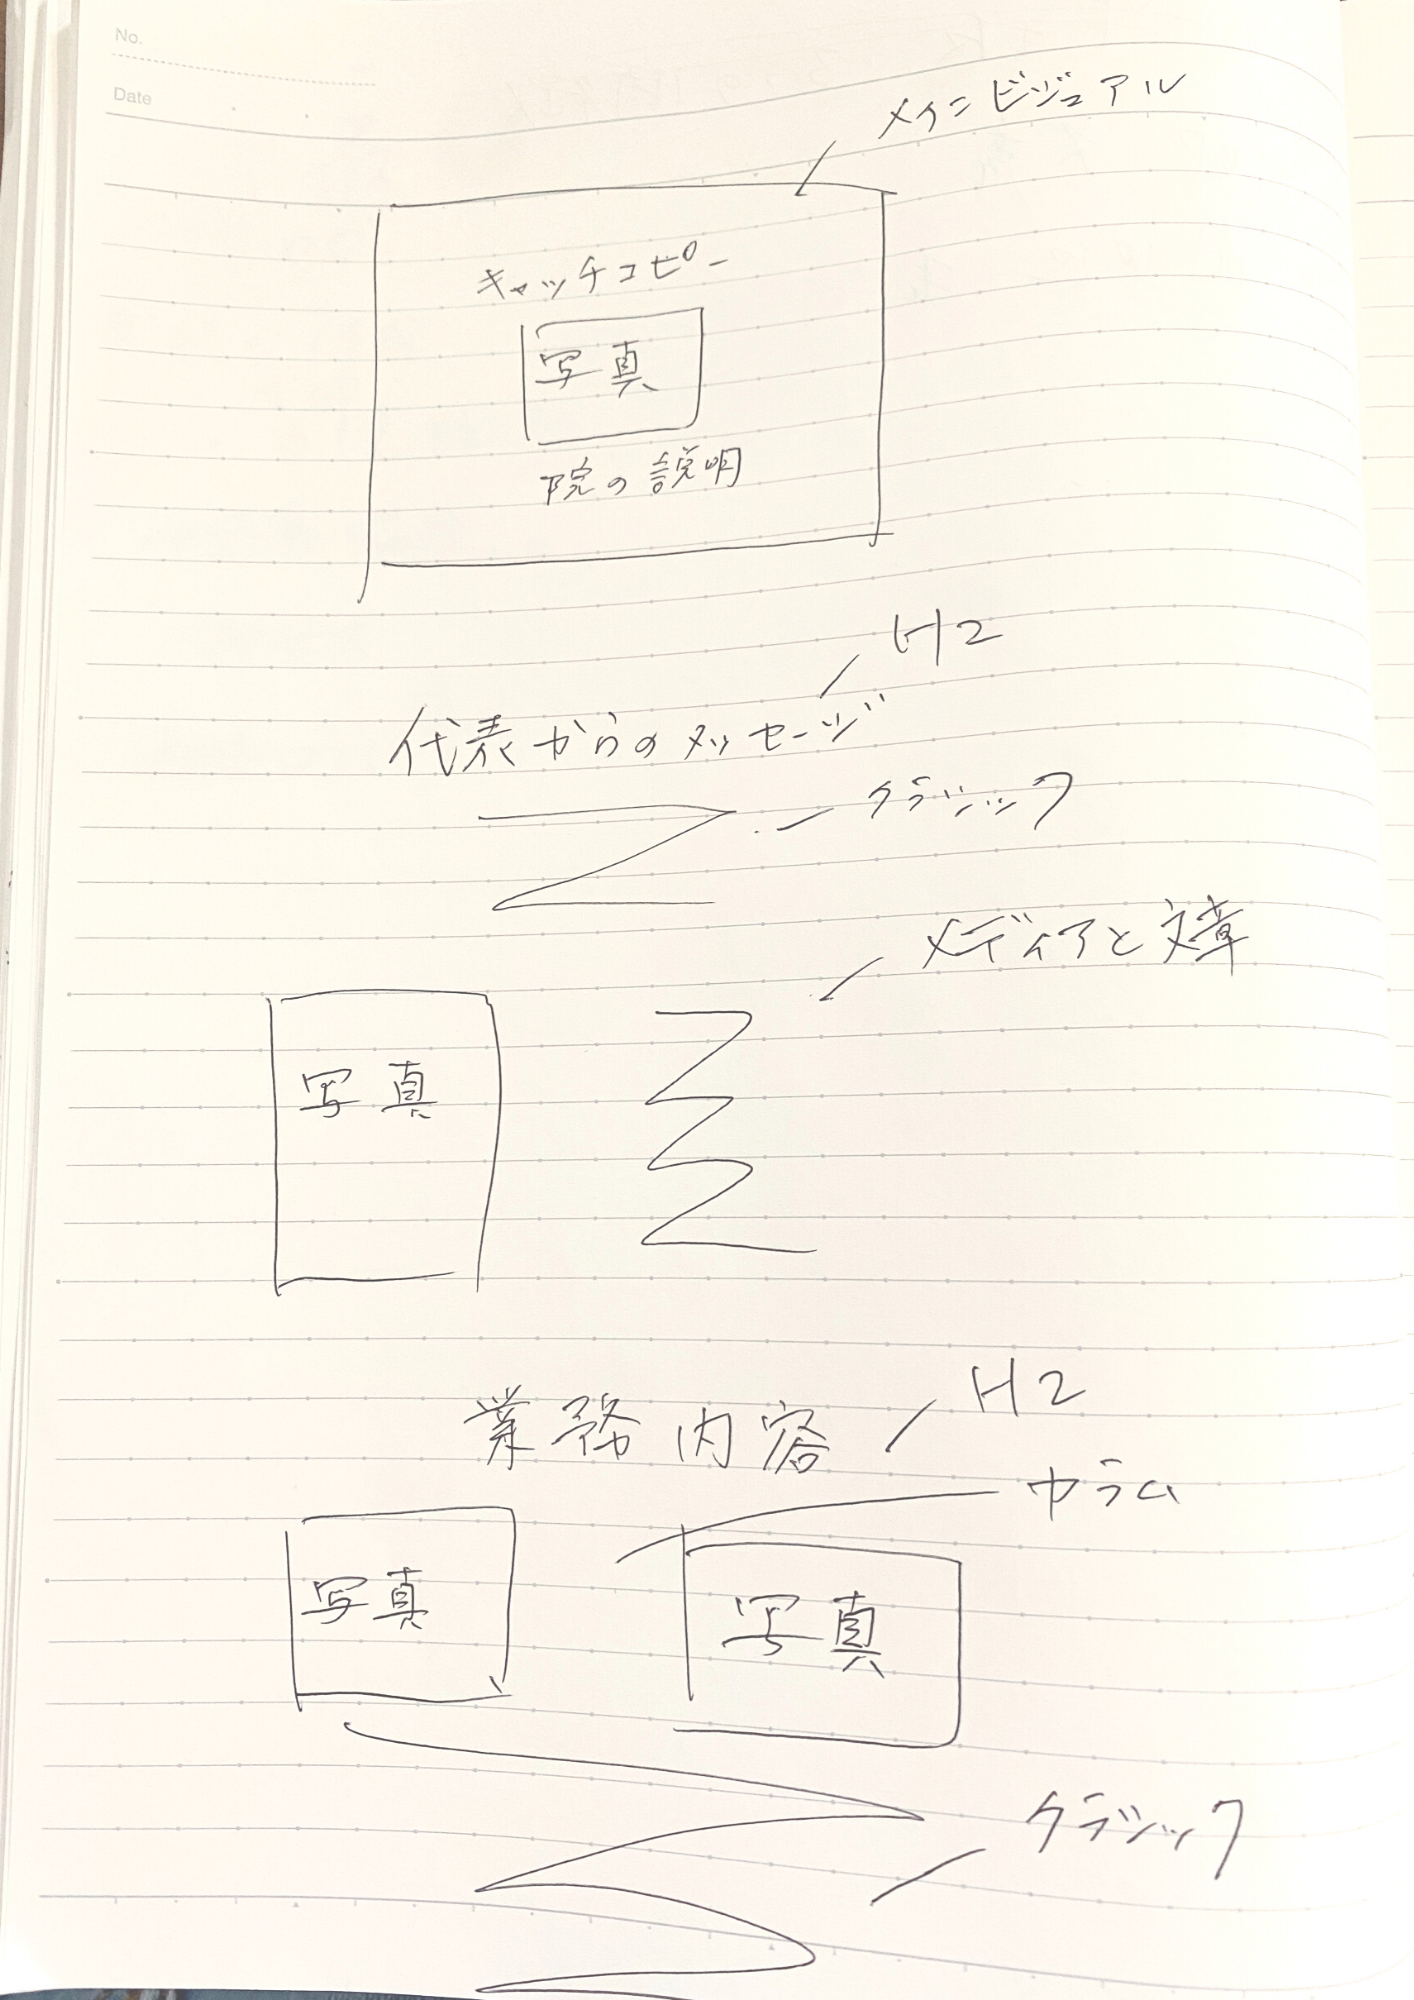 No.
Date
メインビジュアル
キャッチコピー
写真
院の説明
H2
代表からのメッセージ
クラシック
メディアと文章
写真
H2
業務内容
カラム
写真
写真
クラシック